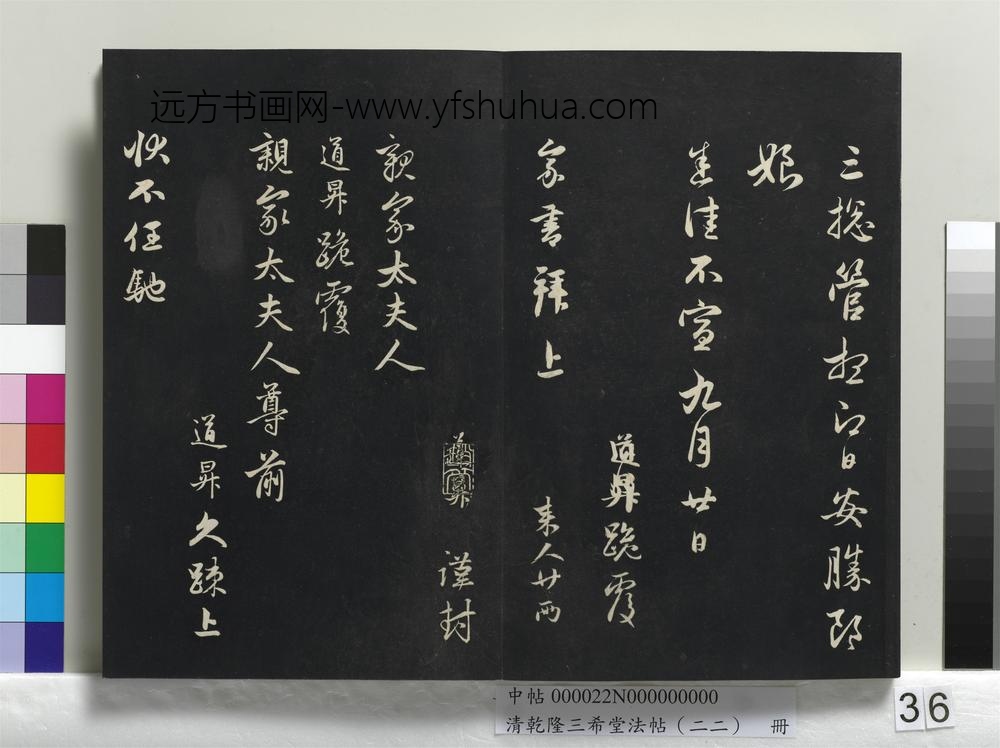 远方书画网-www.yfshuhua.com
三総管想即日安勝郎
娘
佳不宣九月廿日
道昇跪覆
家書拜上
來人廿兩
謹封
親家太夫人
道昇跪覆
親家太夫人尊前
道昇久疎上
狀不任馳
中帖 000022N000000000
清乾隆三希堂法帖（二二） 冊
36